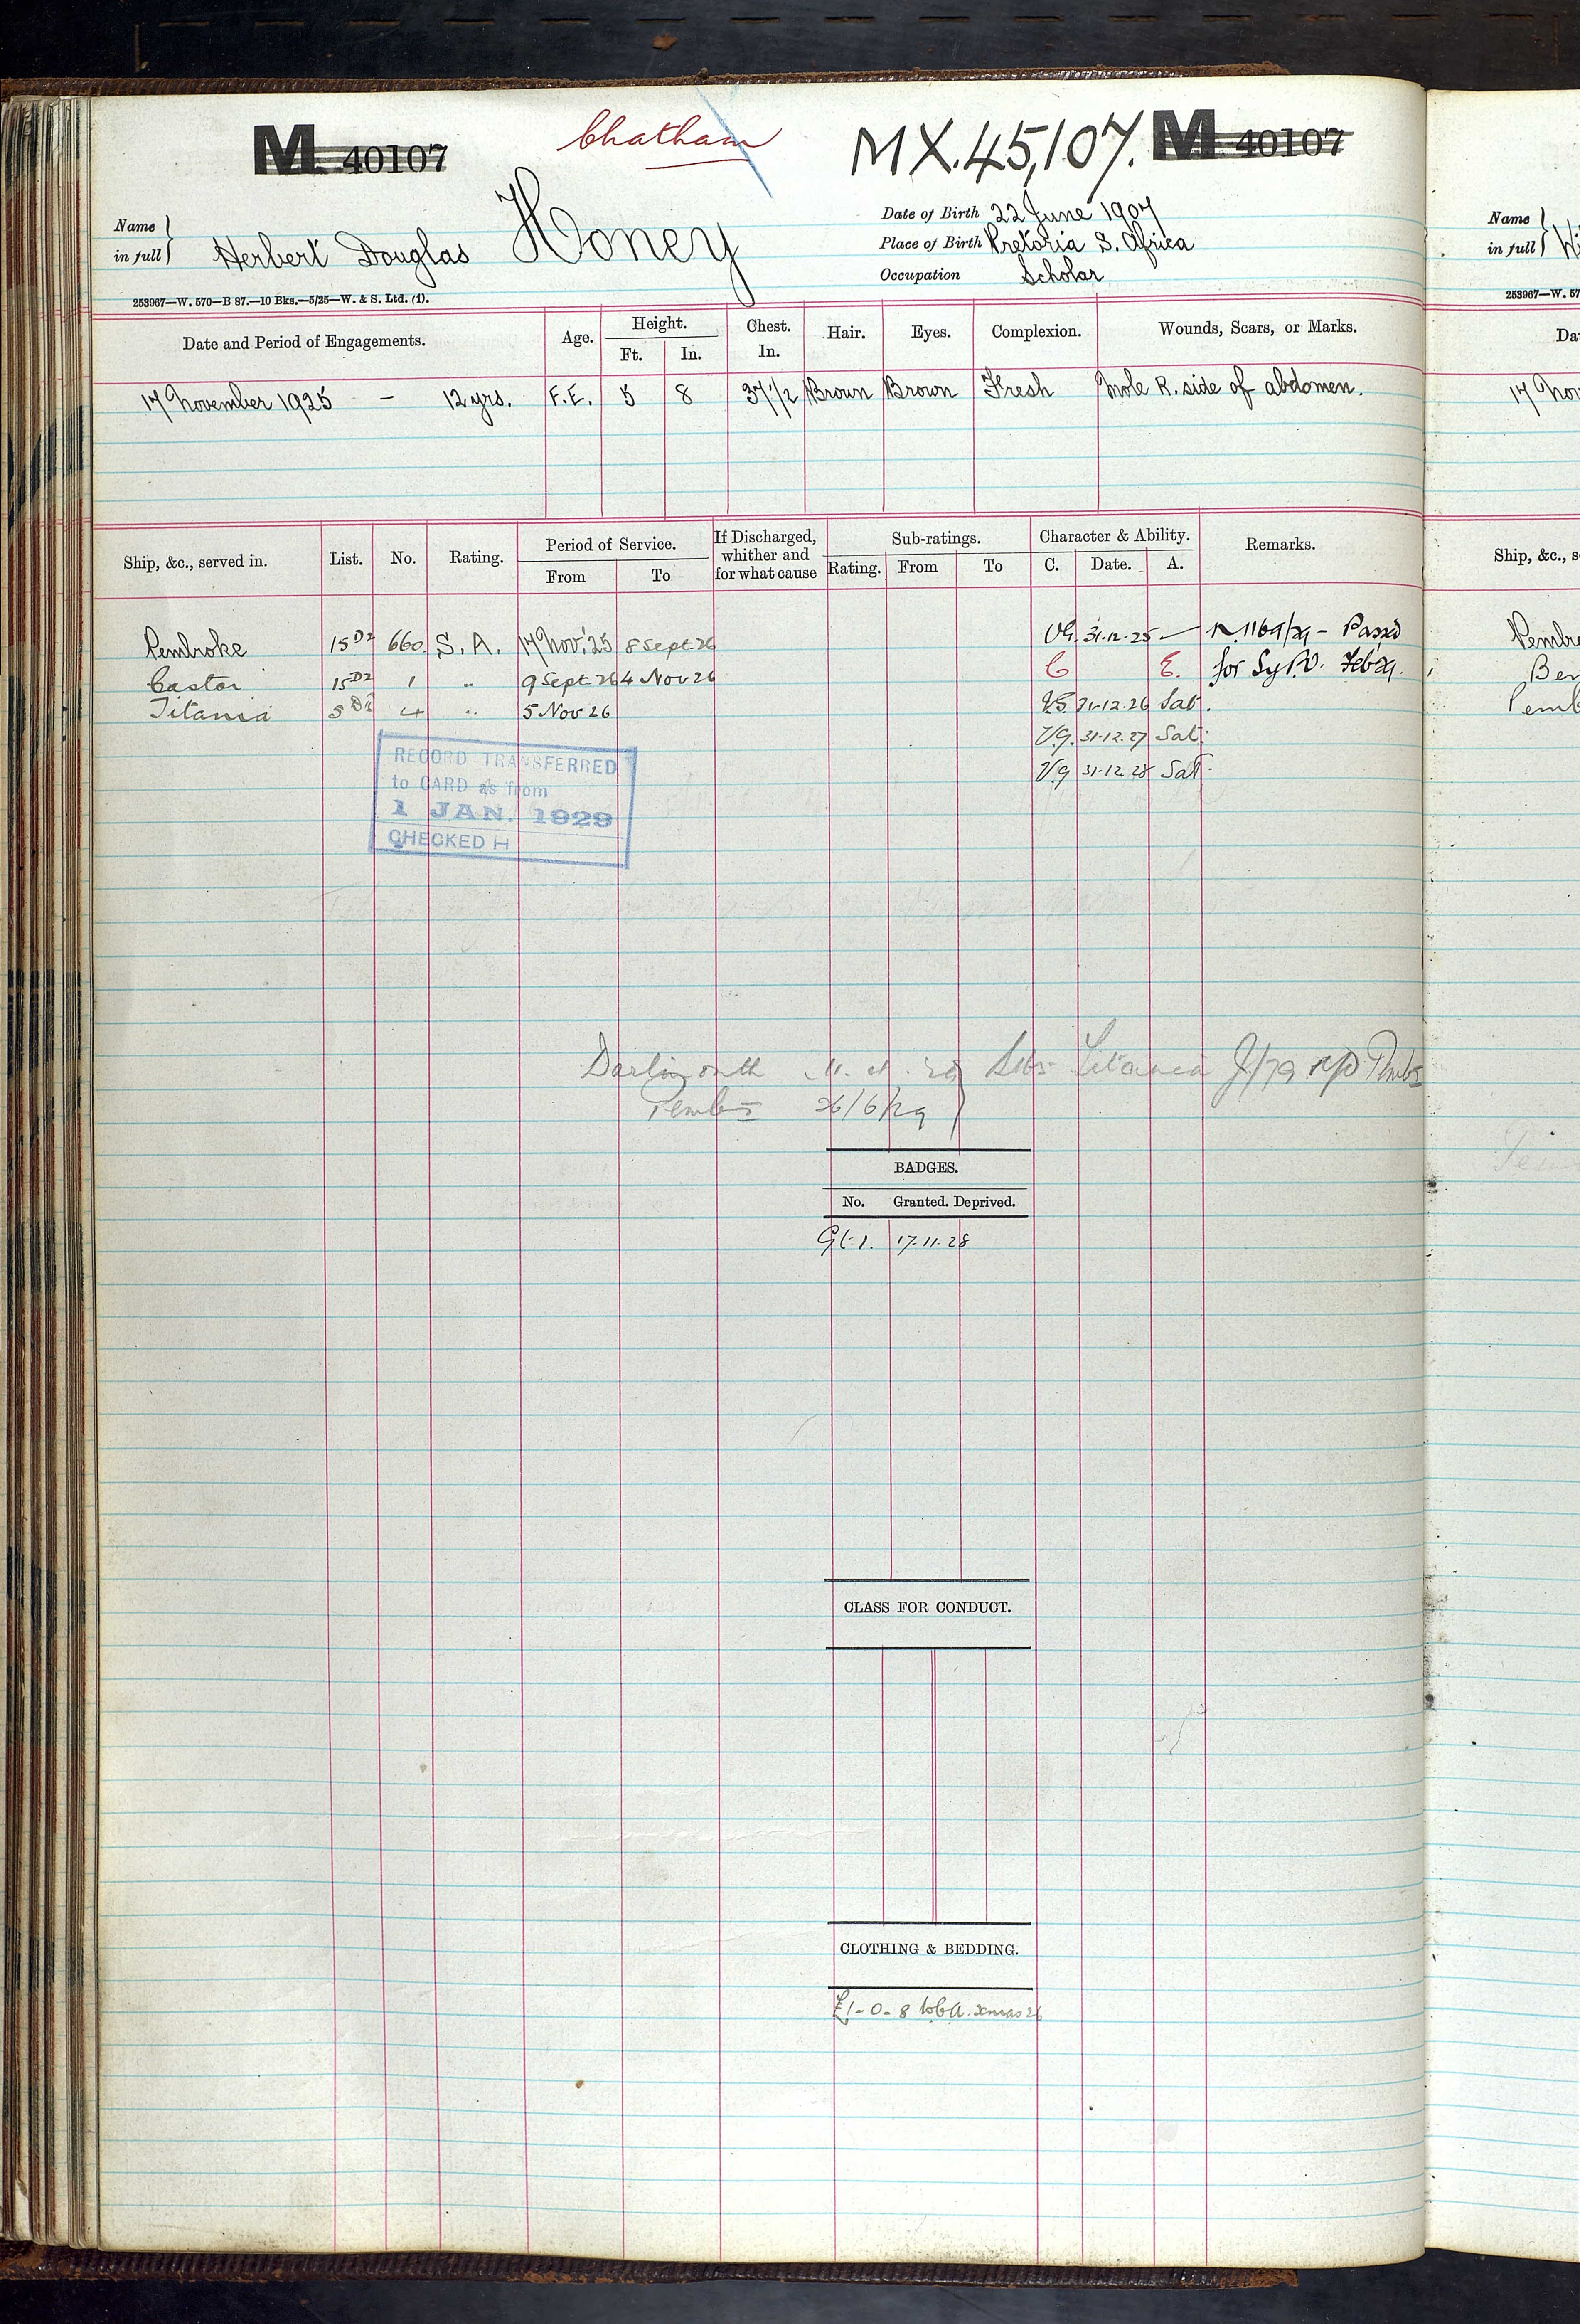 M. 40107 Chatham MX.45,107. M 40107
Name in full } Herbert Douglas Honey
Date of Birth 22 June 1907
Place of Birth Pretoria S. Africa
Occupation Scholar
253967—W. 570—B 87.—10 Bks.—5/25—W. & S. Ltd. (1).
Date and Period of Engagements. Age. Height. Ft. In. Chest. In. Hair. Eyes. Complexion. Wounds, Scars, or Marks.
17 November 1925 — 12 yrs. F.E. 5 8 37 1/2 Brown Brown Fresh Mole R. side of abdomen.
Ship, &c., served in. List. No. Rating. Period of Service. From To If Discharged, whither and for what cause Sub-ratings. Rating. From To Character & Ability. C. Date. A. Remarks.
Pembroke 15D2 660 S.A. 17 Nov. '25 8 Sept 26 VG. 31.12.25 — N.1169/29 - Passed
Castor 15D2 1 " 9 Sept 26 4 Nov 26 C E. for Sy P.O. Feb 29.
Titania 5D2 4 " 5 Nov 26 VG 31-12.26 Sat.
V.g. 31.12.27 Sat.
V.g 31.12.28 Sat.
RECORD TRANSFERRED
to CARD as from
1 JAN. 1929
CHECKED H
Titania
26/6/29
BADGES.
No. Granted. Deprived.
Gt 1. 17-11-28
CLASS FOR CONDUCT.
CLOTHING & BEDDING.
£1-0-8 xmas 26
Name in full }
253967—W. 57
17 Nov
Ship, &c., s